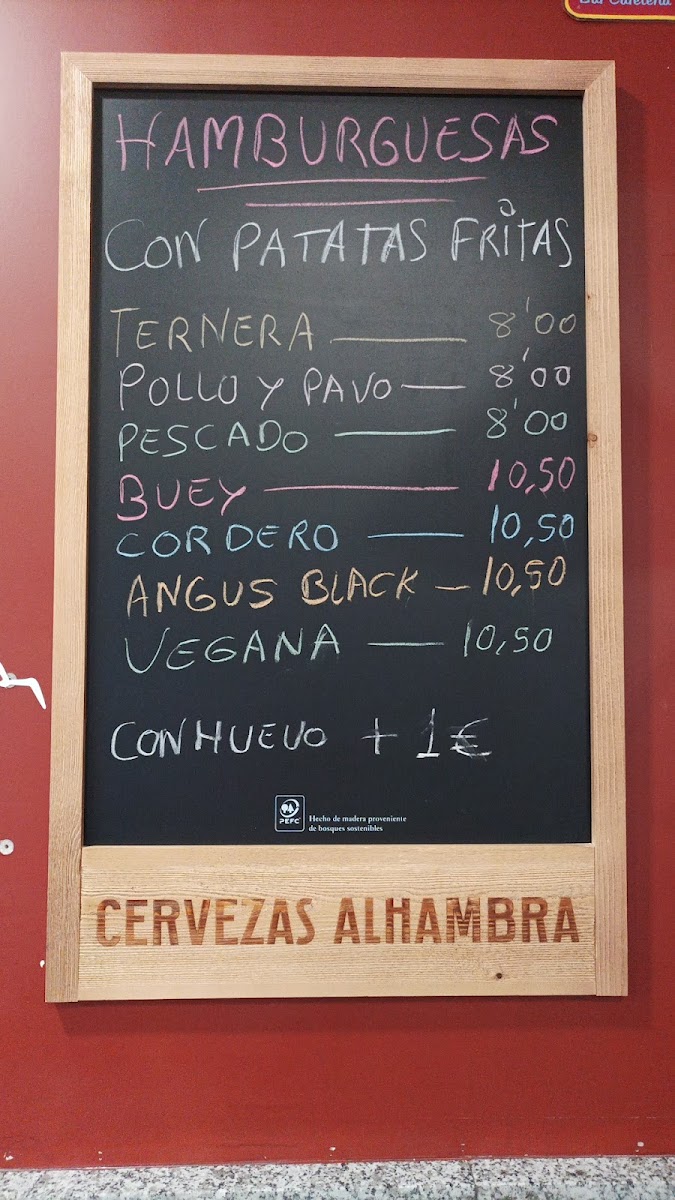 Bar Cafetería
HAMBURGUESAS
CON PATATAS FRITAS
TERNERA — 8'00
POLLO Y PAVO — 8'00
PESCADO — 8'00
BUEY — 10,50
CORDERO — 10,50
ANGUS BLACK — 10,50
VEGANA — 10,50
CON HUEVO + 1€
PEFC
Hecho de madera proveniente
de bosques sostenibles
CERVEZAS ALHAMBRA